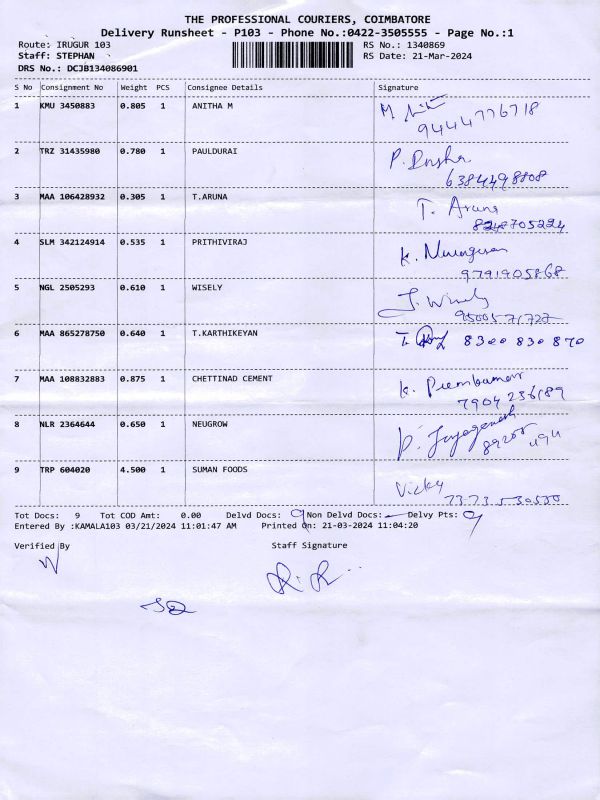 THE PROFESSIONAL COURIERS, COIMBATORE
Delivery Runsheet - P103 - Phone No.:0422-3505555 - Page No.:1
Route: IRUGUR 103 RS No.: 1340869
Staff: STEPHAN RS Date: 21-Mar-2024
DRS No.: DCJB134086901
S No Consignment No Weight PCS Consignee Details Signature
1 KMU 3450883 0.805 1 ANITHA M M
9444776718
2 TRZ 31435980 0.780 1 PAULDURAI P.
6384498808
3 MAA 106428932 0.305 1 T.ARUNA T. Aruna
8248705224
4 SLM 342124914 0.535 1 PRITHIVIRAJ K. Murugesan
9791905868
5 NGL 2505293 0.610 1 WISELY J. Wisely
9500571727
6 MAA 865278750 0.640 1 T.KARTHIKEYAN T. 8300 830 870
7 MAA 108832883 0.875 1 CHETTINAD CEMENT K. Premkumar
7904 236189
8 NLR 2364644 0.650 1 NEUGROW P. Jayaganesh
9 TRP 604020 4.500 1 SUMAN FOODS Vicky
7373530550
Tot Docs: 9 Tot COD Amt: 0.00 Delvd Docs: 9 Non Delvd Docs: - Delvy Pts: 9
Entered By :KAMALA103 03/21/2024 11:01:47 AM Printed On: 21-03-2024 11:04:20
Verified By Staff Signature